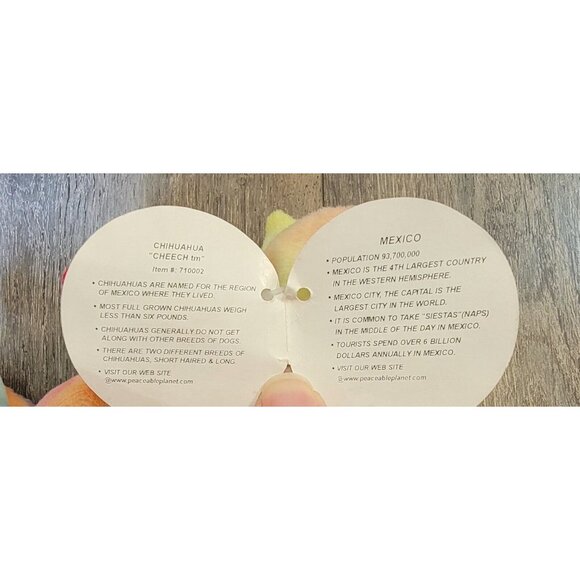 CHIHUAHUA
"CHEECH tm"
Item #: 710002
• CHIHUAHUAS ARE NAMED FOR THE REGION
OF MEXICO WHERE THEY LIVED.
• MOST FULL GROWN CHIHUAHUAS WEIGH
LESS THAN SIX POUNDS.
• CHIHUAHUAS GENERALLY DO NOT GET
ALONG WITH OTHER BREEDS OF DOGS.
• THERE ARE TWO DIFFERENT BREEDS OF
CHIHUAHUAS, SHORT HAIRED & LONG
• VISIT OUR WEB SITE
@www.peaceableplanet.com
MEXICO
• POPULATION 93,700,000
• MEXICO IS THE 4TH LARGEST COUNTRY
IN THE WESTERN HEMISPHERE.
• MEXICO CITY, THE CAPITAL IS THE
LARGEST CITY IN THE WORLD.
• IT IS COMMON TO TAKE "SIESTAS"(NAPS)
IN THE MIDDLE OF THE DAY IN MEXICO.
• TOURISTS SPEND OVER 6 BILLION
DOLLARS ANNUALLY IN MEXICO.
• VISIT OUR WEB SITE
@www.peaceableplanet.com